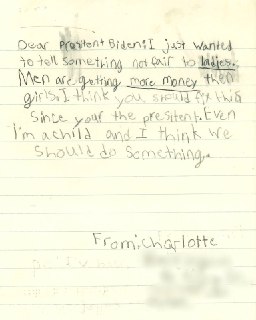 Dear Presitent Biden: I just wanted
to tell something not fair to ladies.
Men are getting more money then
girls. I think you should fix this
since your the presitent. Even
I'm a child and I think we
should do something.
From: Charlotte